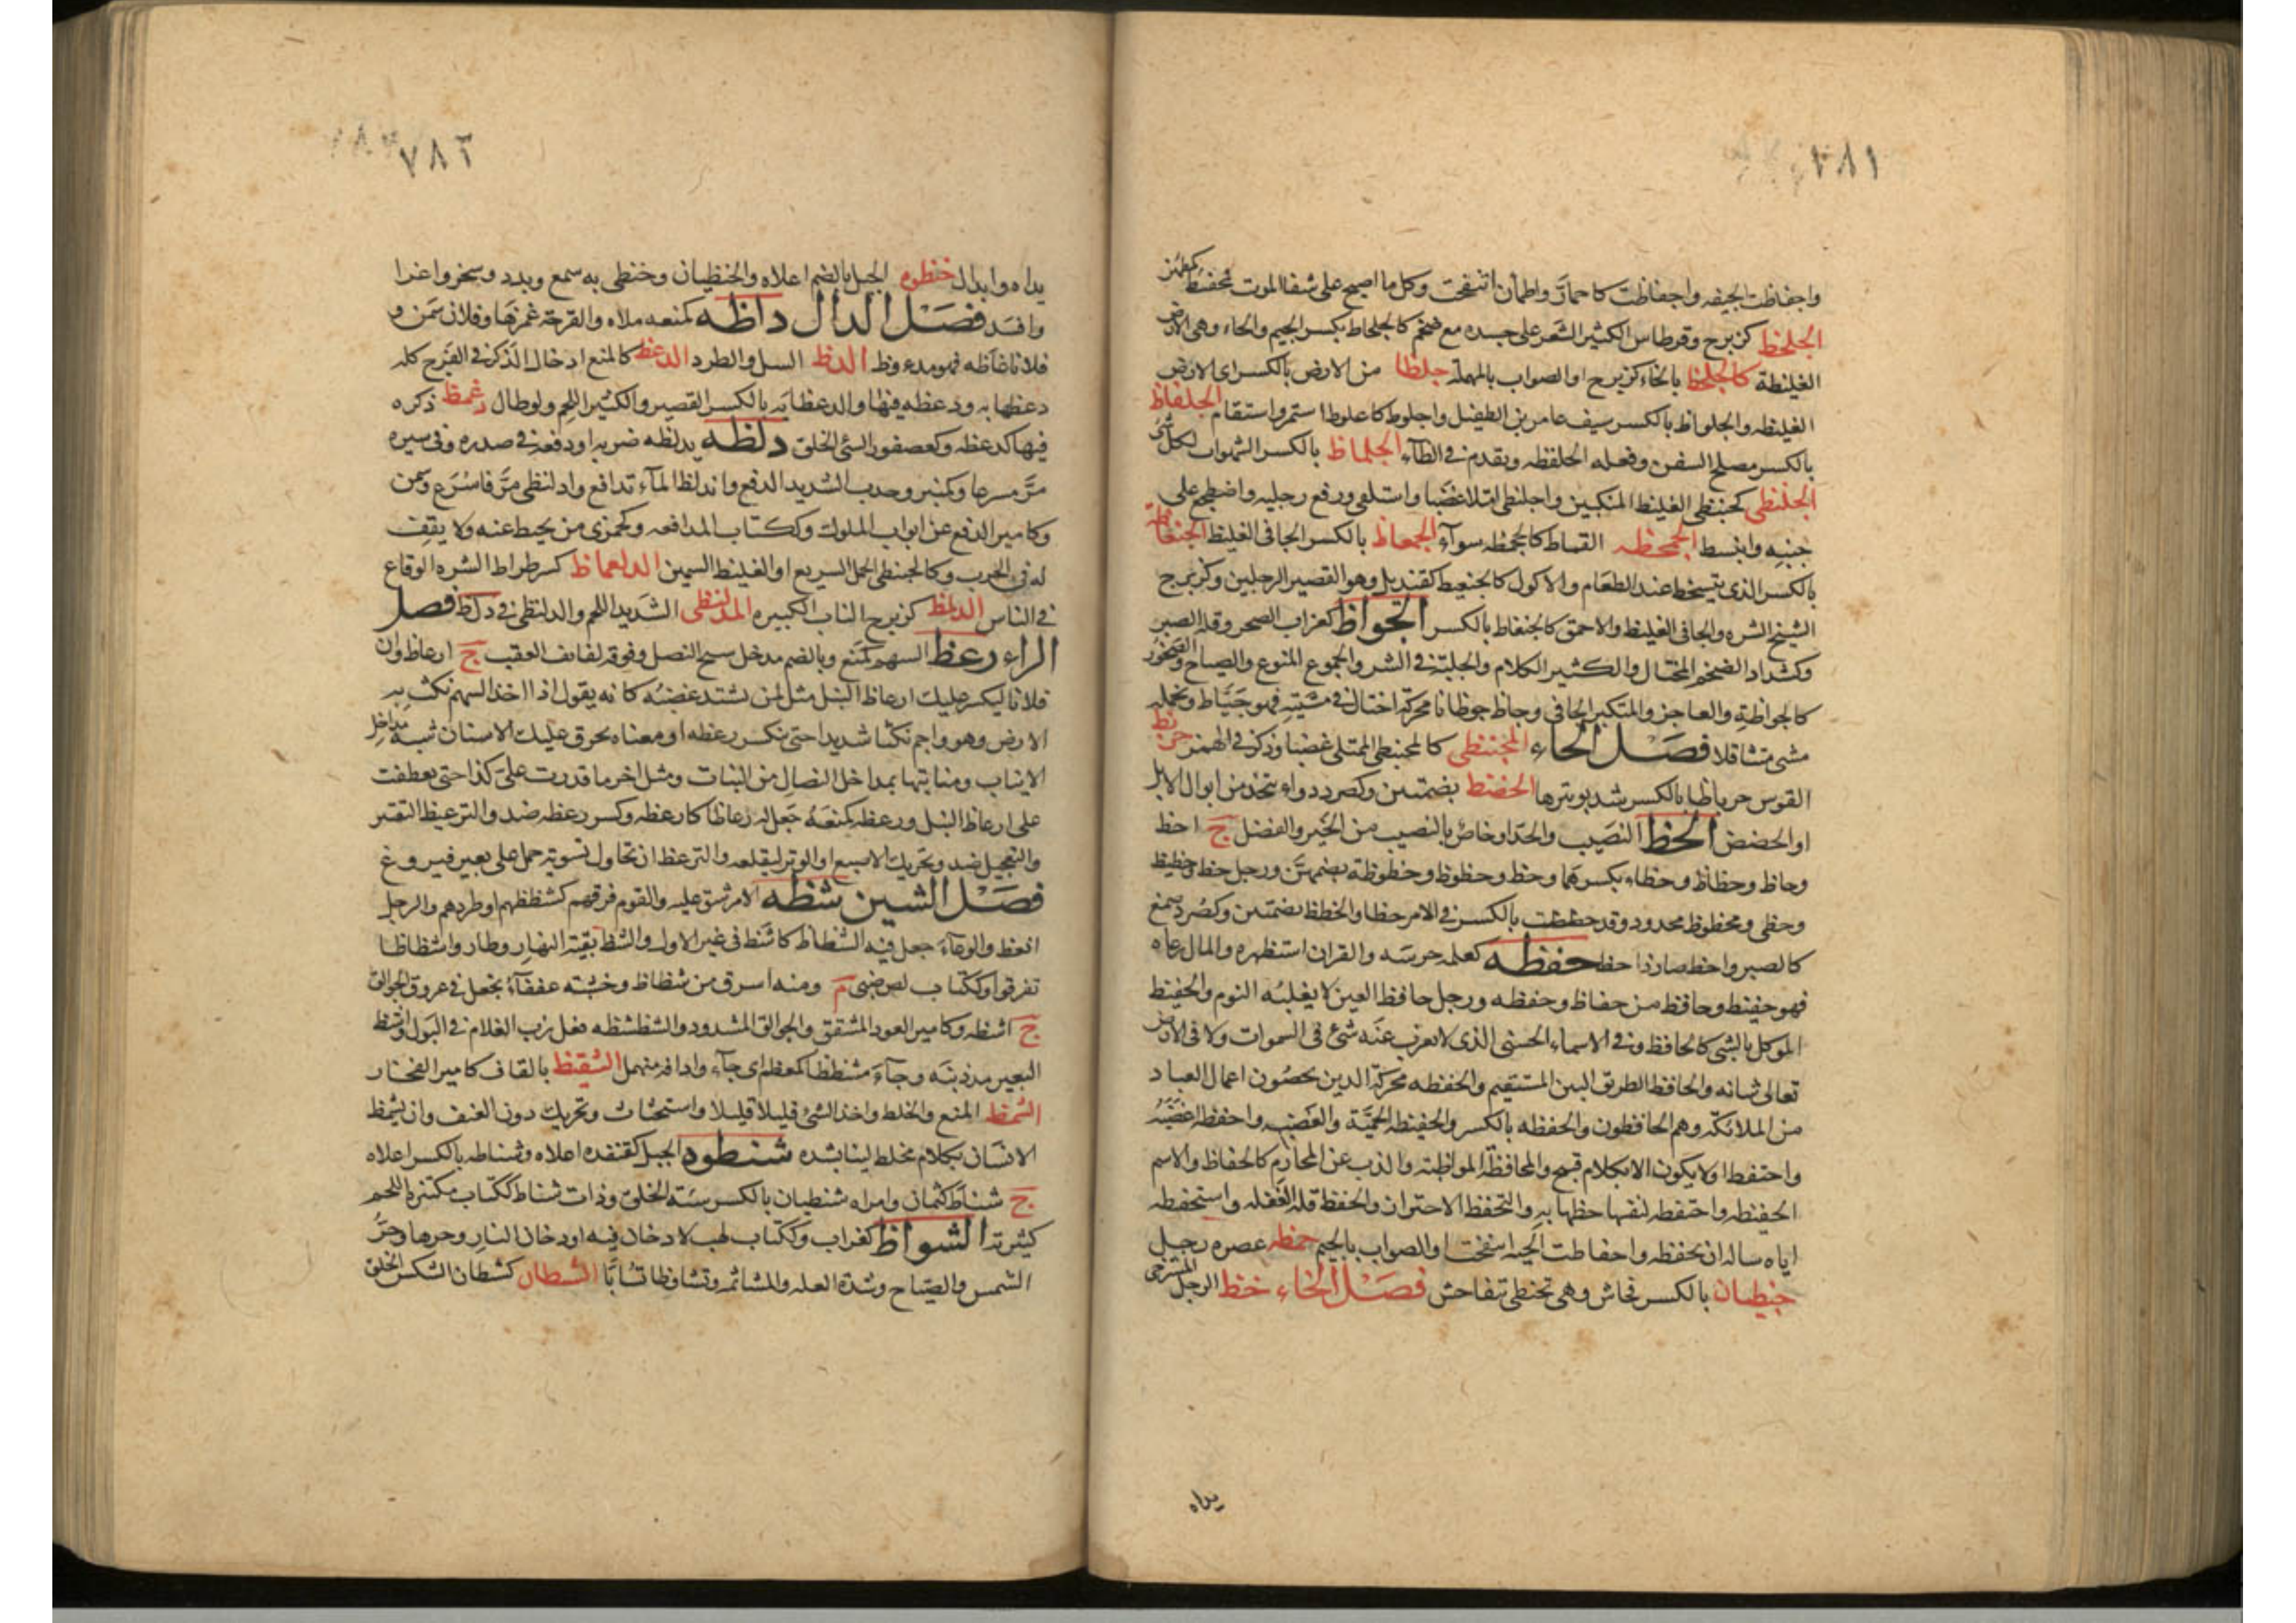 ٧٨١
واجفاظت الجيفه واجفاظت كاحمارّ واطمأن انتفخت وكل ما اصبح على شفا الموت مجفئظ كمطمئن
الجلحظ كزبرج وقرطاس الكثير الشعر على جسده مع ضخم كالجلحاظ بكسر الجيم والحاء وهى الارض
الغليظة كالجلخظ بالخاء كزبرج او الصواب بالمهملة جلظا من الارض بالكسر اى الارض
الغليظه والجلواظ بالكسر سيف عامر بن الطفيل واجلوظ كاعلوط استمر واستقام الجلفاظ
بالكسر مصلح السفن وفعله الجلفظه وتقدم فى الطاء الجلماظ بالكسر الشهوان لكل شئ
الجلنظى كحبنطى الغليظ المنكبين واجلنظى امتلا غضبا واستلقى ورفع رجليه واضطجع على
جنبه وانبسط الجمحظه القماط كالجحمظه سوآء الجمعاظ بالكسر الجافى الغليظ الجنعاظه
بالكسر الذى يتسخط عند الطعام والاكول كالجنعيظ كقنديل وهو القصير الرجلين وكزبرج
الشيخ الشره والجافى الغليظ والاحمق كالجنعاظ بالكسر الجواظ كغراب الضجر وقلة الصبر
وكشداد الضخم المختال والكثير الكلام والجلبة فى الشر والجموع المنوع والصياح والضجور
كالجواظة والعاجز والمتكبر الجافى وجاظ جوظانا محركة اختال فى مشيته فهو جياظ وبحمله
مشى متثاقلا فصل الحاء المحبنظى كالمحبنطى الممتلى غضبا وذكر فى الهمز حربظ
القوس حرباظا بالكسر شد بوترها الحضظ بضمتين وكصرد دواء يتخذ من ابوال الابل
او الحضض الحظ النصيب والحد او خاص بالنصيب من الخير والفضل ج احظ
وحاظ وحظاظ وحظاء بكسرهما وحظ وحظوظ وحظوظة بضمهن ورجل حظ وحظيظ
وحظى ومحظوظ محدود وقد حظظت بالكسر فى الامر حظا والحظظ بضمتين وكصرد صمغ
كالصبر واحظ صار ذا حظ حفظه كعلمه حرسه والقران استظهره والمال رعاه
فهو حفيظ وحافظ من حفاظ وحفظه ورجل حافظ العين لا يغلبه النوم والحفيظ
الموكل بالشئ كالحافظ وفى الاسماء الحسنى الذى لا يعزب عنه شئ فى السموات ولا فى الارض
تعالى شانه والحافظ الطريق البين المستقيم والحفظه محركة الذين يحصون اعمال العباد
من الملائكة وهم الحافظون والحفظه بالكسر والحفيظه الحمية والغضب واحفظه اغضبه
واحتفظ او لا يكون الا بكلام قبيح والمحافظة المواظبة والذب عن المحارم كالحفاظ والاسم
الحفيظه واحتفظه لنفسها خظها به والتحفظ الاحتراز والحفظ قلة الغفله واستحفظه
اياه ساله ان يحفظه واحفاظت الجيفه انتفخت او الصواب بالجيم حمظه عصره رجل
حنظيان بالكسر فحاش وهى تحنظى تتفاحش فصل الخاء خظ الرجل استرخى
يداه
٧٨٢
يداه وابدال خنظوه الجبل بالضم اعلاه والخنظيان وخنظى به سمع وبدد وسخر واغرا
وافسد فصل الدال داظه كمنعه ملاه والقرحة غمزها وفلان سمن و
فلانا غاظه فهو مدعوظ الدظ السل والطرد الدعظ كالمنع ادخال الذكر فى الفرج كله
دعظها به ودعظه فيها والدعظايه بالكسر القصير والكثير اللحم ولوطال دعمظ ذكره
فيها كدعظه وكعصفور السئ الخلق دلظه يدلظه ضربه او دفعه فى صدره وفى سيره
مرّ مسرعا وكمنبر وحدب الشديد الدفع واندلظ المآء تدافع وادلنظى مرّ فاسرع وسمن
وكامير الدفع عن ابواب الملوك وككتاب المدافعه وكجمزى من يحيط عنه ولا يقف
له فى الحرب وكالحبنطى الجمل السريع او الغليظ السمين الدلعماظ كسرطراط الشره الوقاع
فى الناس الدلمظ كزبرج الناب الكبيره المدلنظى الشديد اللحم والدلنظى فى دلظ فصل
الراء رعظ السهم كمنع وبالضم مدخل سنخ النصل وفوقه لفائف العقب ج ارعاظ وان
فلانا ليكسر عليك ارعاظ النبل مثل لمن يشتد غضبه كانه يقول اذا اخذ السهم نكث به
الارض وهو واجم نكثا شديدا حتى ينكسر رعظه او معناه يحرق عليك الاسنان شبه مداخل
الانياب ومنابتها بمداخل النصال من النبات ومثل اخر ما قدرت على كذا حتى تعطفت
على ارعاظ النبل ورعظه كمنعه جعل له رعاظا كارعظه وكسر رعظه ضد والترعيظ التفتير
والتعجيل ضد وتحريك الاصبع او الوتر ليقلعه والترعظ ان تحاول تسوية حمل على بعير فيروغ
فصل الشين شظه الامر شق عليه والقوم فرقهم كشظظهم او طردهم والرجل
انعظ والوعآء جعل فيه الشظاظ كاشظ فى غير الاول والشظ بقية النهار وطار واشظاظا
تفرقوا وككتاب لص ضبى م ومنه اسرق من شظاظ وخشبه عقفآء تجعل فى عروق الجوالق
ج اشظه وكامير العود المشقق والجوالق المشدود والشظشظه فعل زب الغلام فى البول واشظ
البعير مد ذنبه وجآء مشظظا كمعظم اى جآء واداف منهمل الشقيظ بالقاف كامير الفخار
الشمظ المنع والخلط واخذ الشئ قليلا قليلا واستحثاث وتحريك دون العنف وان يشمظ
الانسان بكلام يخلط لينا بشده شنظوه الجبل كقنفده اعلاه وشناظه بالكسر اعلاه
ج شناظ كثمان وامراه شنظيان بالكسر سئة الخلق وذات شناظ ككتاب مكتنزة اللحم
كثيرته الشواظ كغراب وككتاب لهب لا دخان فيه او دخان النار وحرها وحرّ
الشمس والصياح وشدة الغله والمشاتمه وتشاوظا تسابّا الشظان كشظان الشكس الخلق